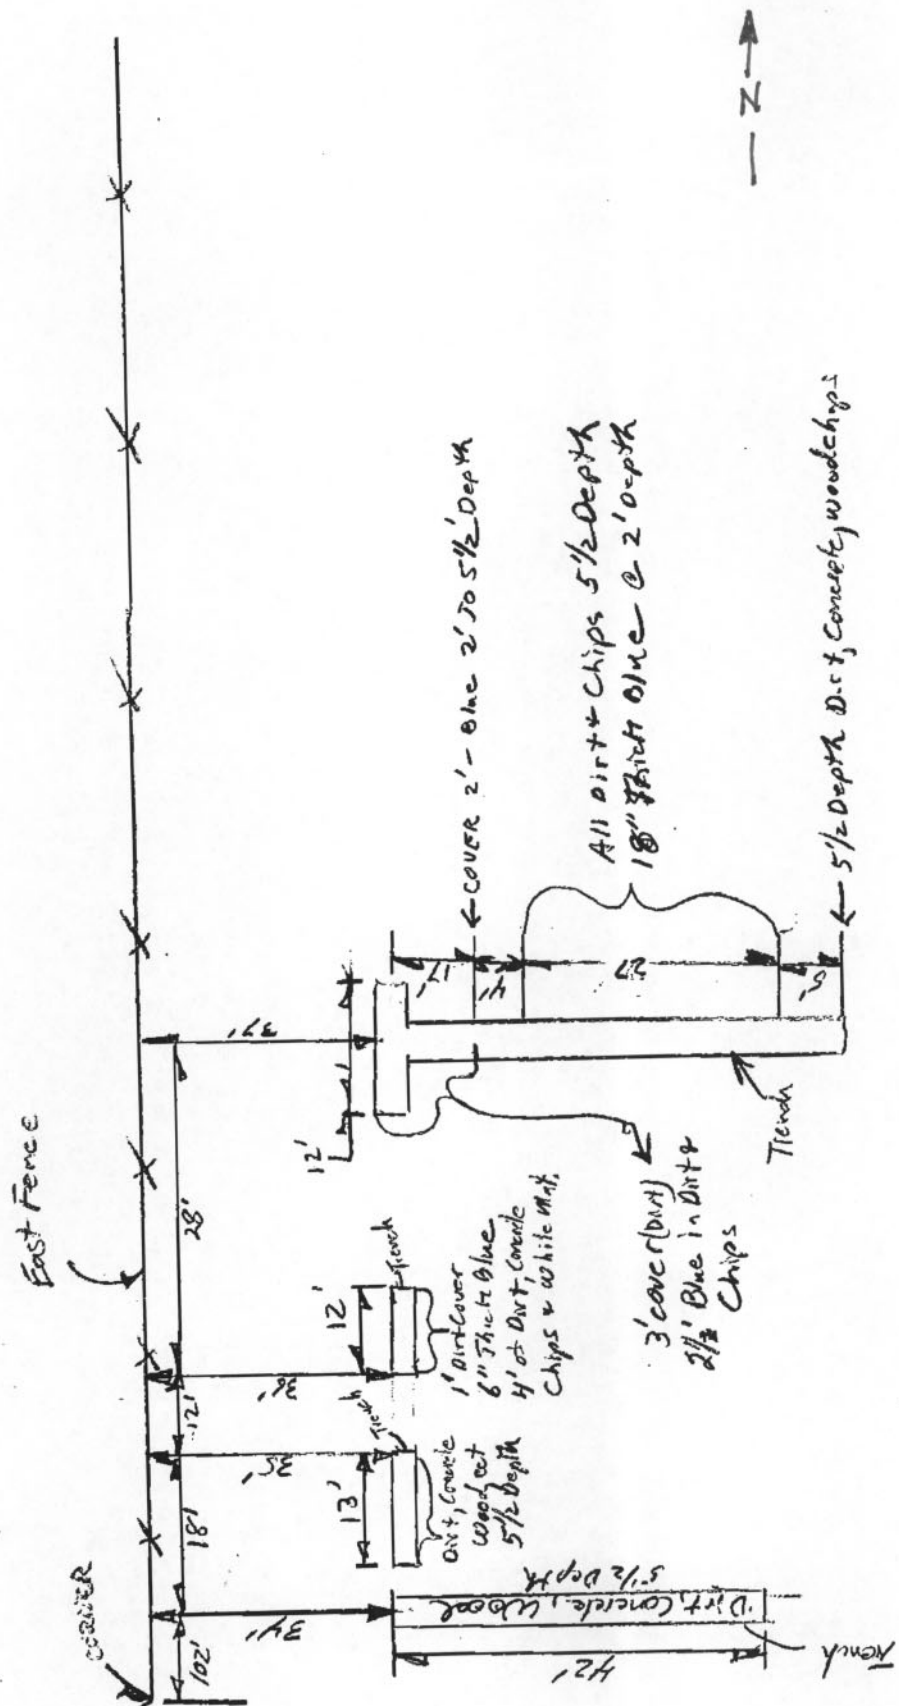 CORNER
East Fence
102'
18'
12'
28'
34'
35'
36'
37'
Trench
42'
Dirt, Concrete, Wood
5 1/2 Depth
13'
Trench
Dirt, Concrete
Wood ect
5 1/2 Depth
12'
Trench
1' Dirt Cover
6" Thick Blue
4' of Dirt, Concrete
Chips & White Mat.
12'
3' cover (Dirt)
Blue in Dirt &
Chips
Trench
17'
4'
27
5'
COVER 2' - Blue 2' TO 5 1/2' Depth
All Dirt & Chips 5 1/2 Depth
18" Thick Blue @ 2' Depth
5 1/2 Depth Dirt, Concrete, woodchips
N